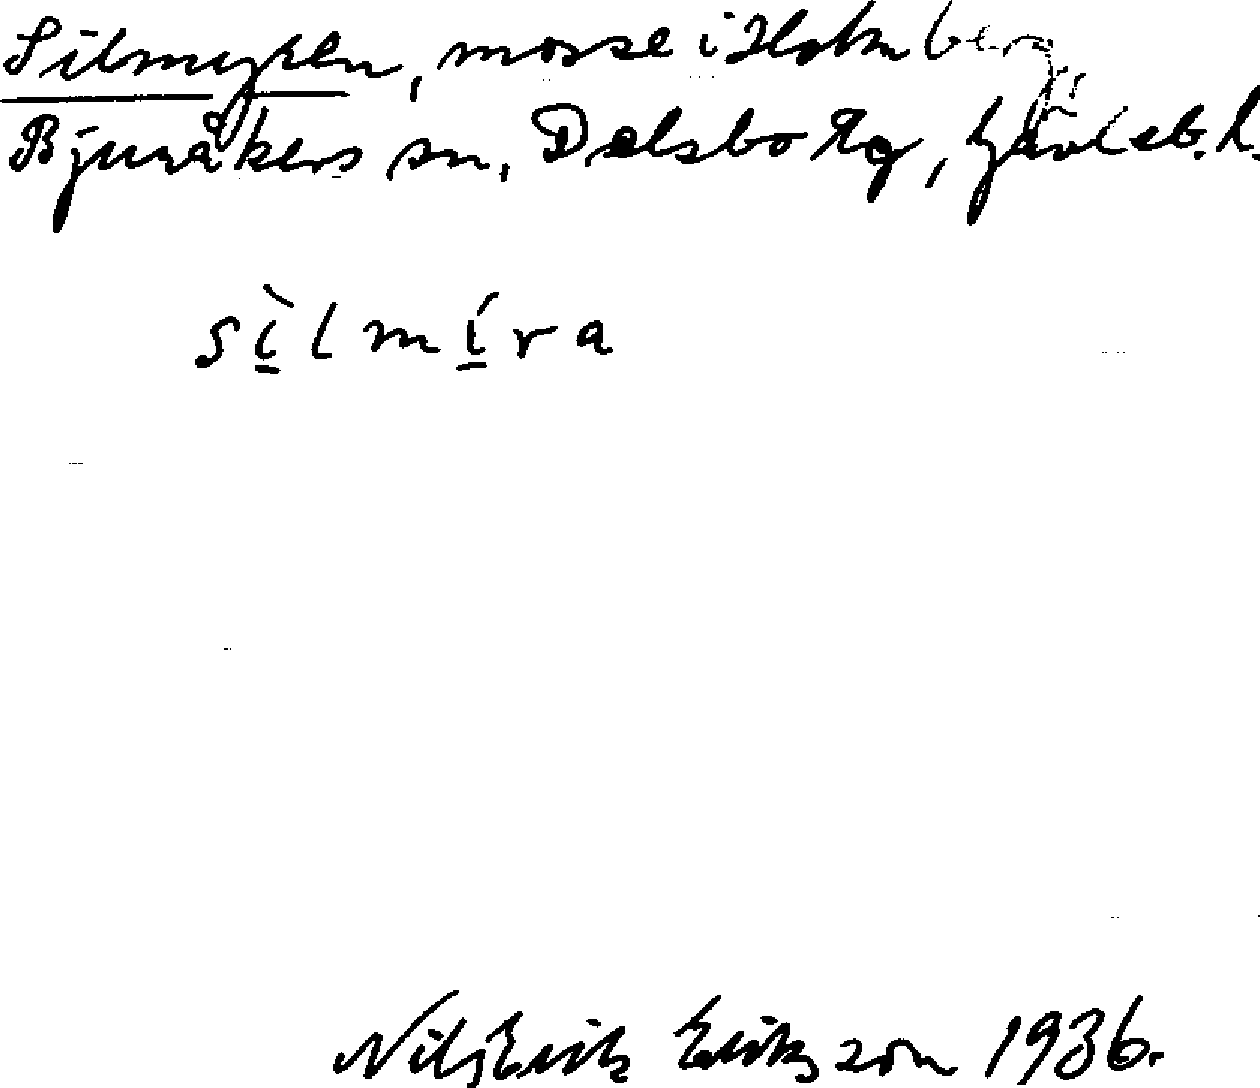 Silmyren, mosse i Holmberg,
Bjuråkers sn, Delsbo tg, Gävleb. l.
sìlmíra
Nils Erik Eriksson 1936.